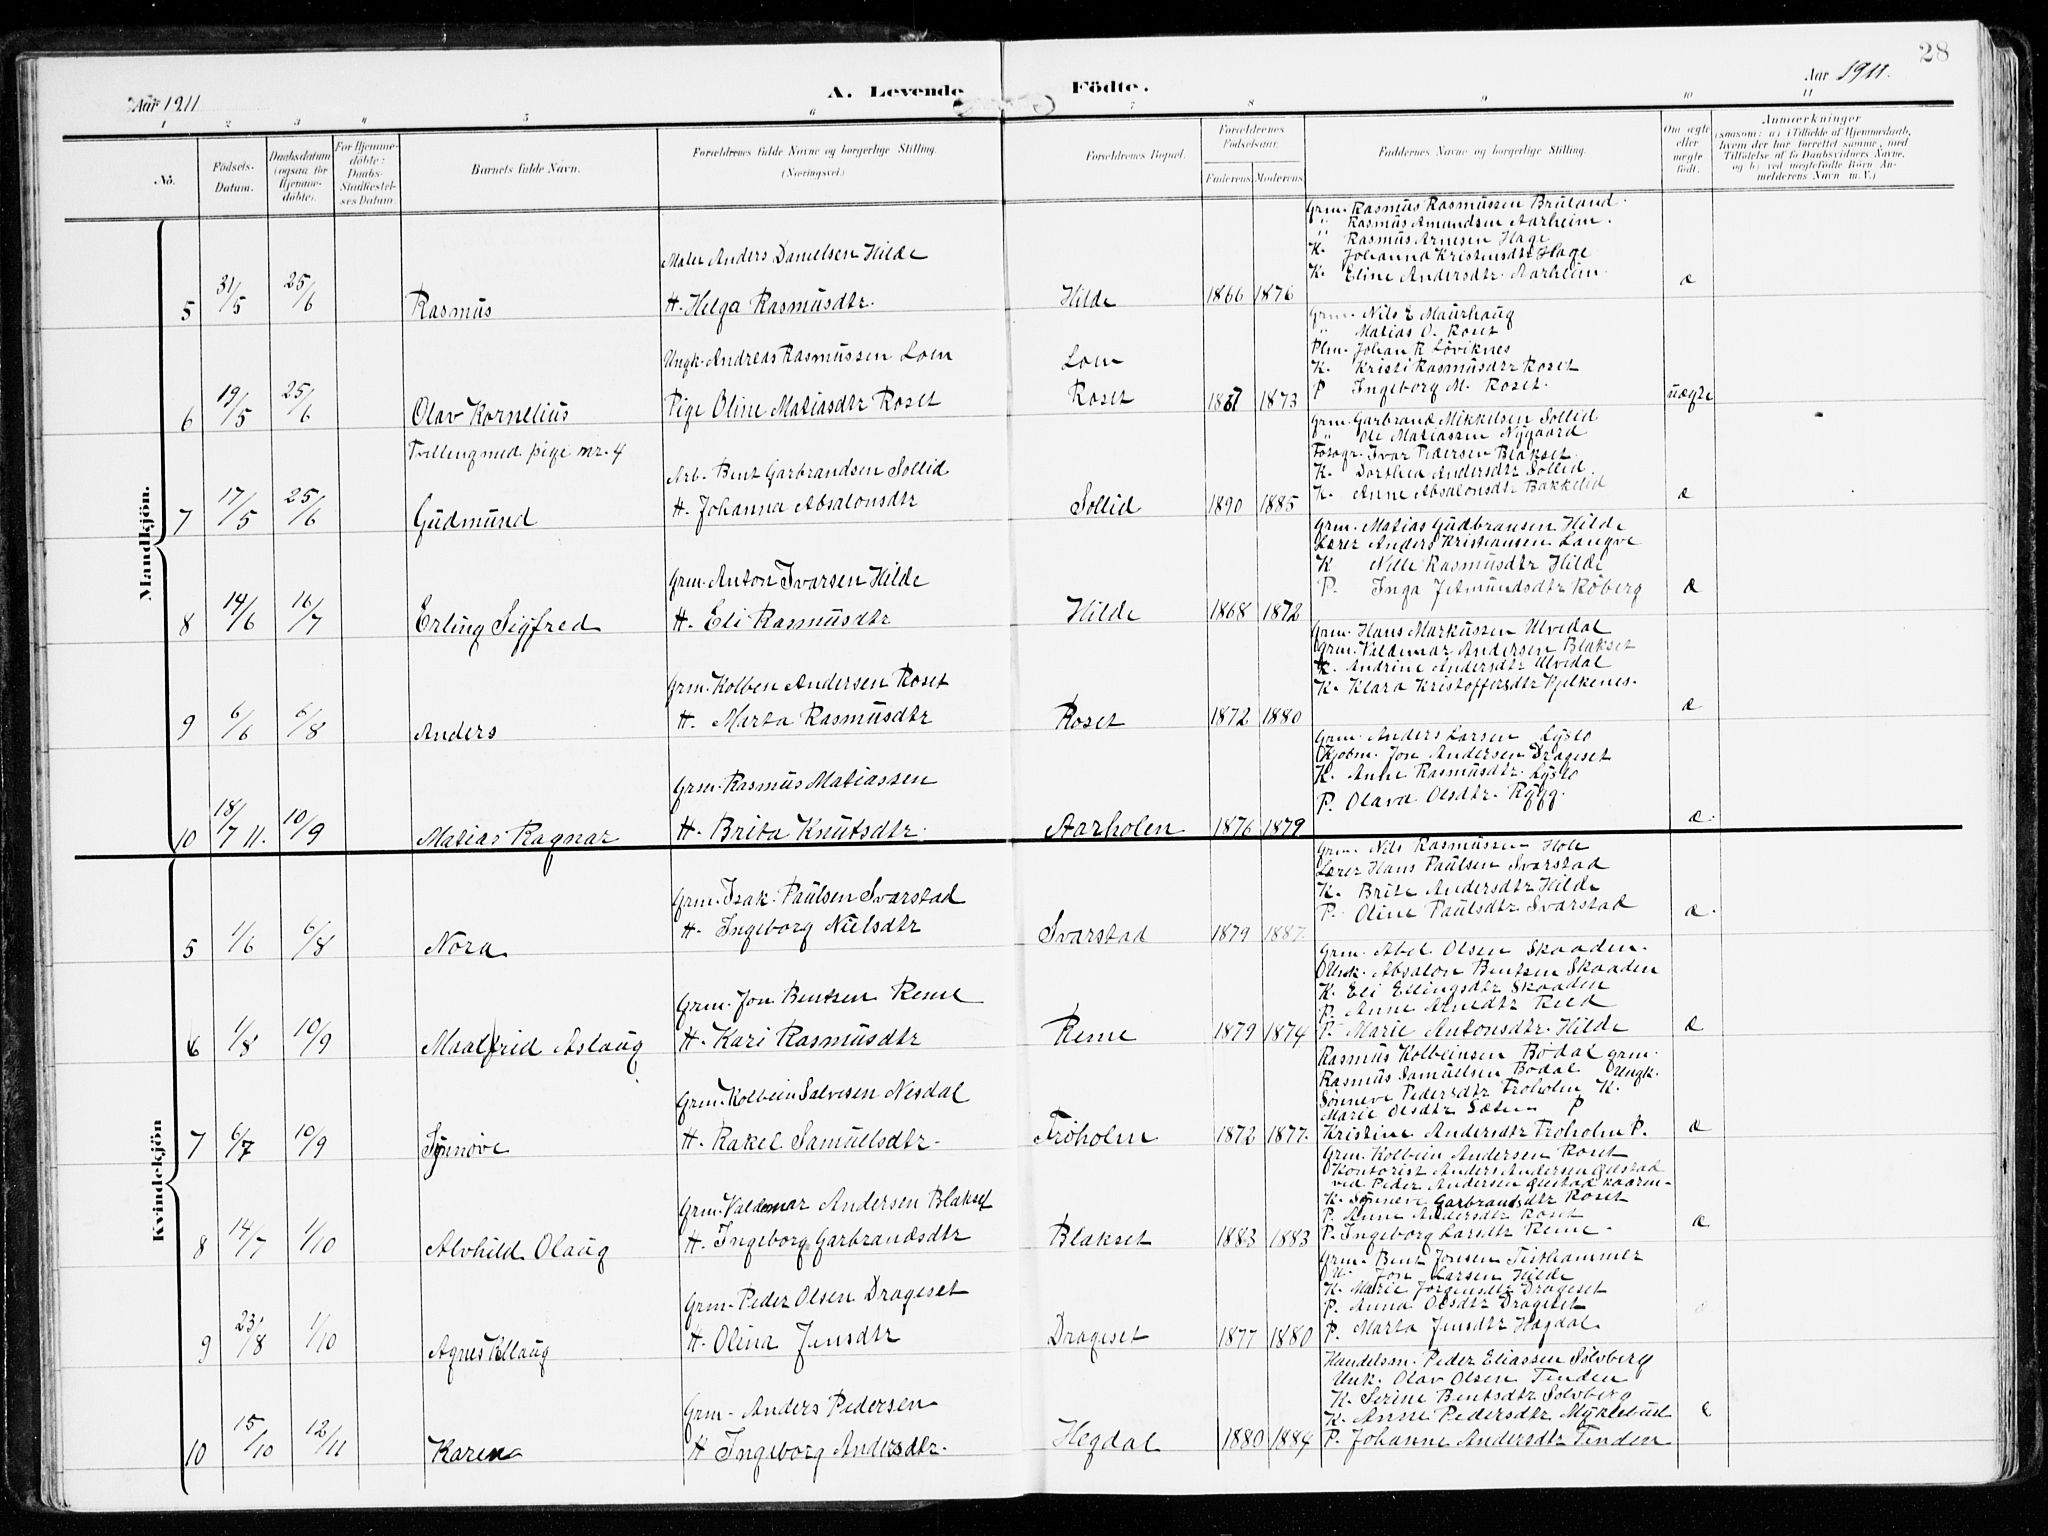 28
Aar 1911
A. Levende Födte.
Aar 1911.
1 2 3 4 5 6 7 8 9 10 11
No.
Födsels-Datum.
Daabsdatum (ogsaa for Hjemme-döbte).
For Hjemme-döbte: Daabs-Stadfæstelses Datum.
Barnets fulde Navn.
Forældrenes fulde Navne og borgerlige Stilling.
(Næringsvei.)
Forældrenes Bopæl.
Forældrenes Födselsaar.
Faderens. Moderens.
Faddernes Navne og borgerlige Stilling.
Om ægte eller uægte födt.
Anmærkninger
(saasom: a) i Tilfælde af Hjemmedaab, hvem der har forrettet samme, med Tilföielse af to Daabsvidners Navne, og b) ved uægtefödte Börn Anmelderens Navn m. V.)
Mandkjön.
5 31/5 25/6 Rasmus
Maler Anders Danielsen Hilde
H. Helga Rasmusdtr.
Hilde 1866 1876
Grm. Rasmus Rasmussen Bruland.
" Rasmus Amundsen Aarheim.
Rasmus Arnesen Hage
K. Johanna Kristensdtr Hage
K. Eline Andersdtr. Aarheim.
æ
6 19/5 25/6 Olav Kornelius
Ungk. Andreas Rasmussen Loen
Pige Oline Matiasdtr Roset
Loen
Roset 1873
Grm. Nils E Maurhaug
" Matias O. Roset
Plm. Johan R Löviknes
K. Kristi Rasmusdtr Roset
P Ingeborg M. Roset.
uægte
Tvilling med pige nr. 4
7 17/5 25/6 Gudmund
Arb. Bent Garbrandsen Sollid
H. Johanna Absalonsdtr
Sollid 1890 1885
Grm. Garbrand Mikkelsen Sollid
" Ole Matiassen Nygaard
Fotogr. Ivar Pedersen Blakset.
K. Dorthea Andersdtr Sollid.
K. Anne Absalonsdtr Bakkelid
æ
8 14/6 16/7 Erling Sigfred
Grm. Anton Ivarsen Hilde
H. Eli Rasmusdtr
Hilde 1868 1872
Grm. Matias Gudbransen Hilde
Lærer Anders Kristiansen Langve
K Nille Rasmusdtr Hilde
P. Inga Jetmundsdtr Röberg
æ
9 6/6 6/8 Anders
Grm. Kolben Andersen Roset
H. Marta Rasmusdtr
Roset 1872 1880
Grm. Hans Markussen Ulvedal
Grm. Valdemar Andersen Blakset
K. Andrine Andersdtr Ulvedal
K. Klara Kristoffersdtr Hjelkenes.
æ
10 18/7 11. 10/9 Matias Ragnar
Grm. Rasmus Matiassen
H. Brita Knutsdtr.
Aarholen 1876 1879
Grm. Anders Larsen Lyslo
Kjobm. Jon Andersen Drageset
K. Anne Rasmusdtr. Lyslo
P. Olava Olsdtr. Rygg.
æ.
Kvindekjön
5 1/6 6/8 Nora
Grm. Isak Paulsen Svarstad
H. Ingeborg Nielsdtr
Svarstad 1879 1887.
Grm. Nils Rasmussen Hole
Lærer Hans Paulsen Svarstad
K. Brite Andersdtr Hilde
P. Oline Paulsdtr Svarstad
æ.
6 1/8 10/9 Maalfrid Aslaug
Grm. Jon Bentsen Reme
H. Kari Rasmusdtr
Reme 1879 1874
Grm. Abel Olsen Skaaden.
Unk. Absalon Bentsen Skaaden
K. Eli Ellingsdtr Skaaden
P. Anne Arnedtr Reed
P. Marie Antonsdtr. Hilde
æ
7 6/7 10/9 Synnöve
Grm. Kolbein Salvesen Nesdal
H. Rakel Samuelsdtr.
Tröholm 1872 1877.
Rasmus Kolbeinsen Bödal grm.
Rasmus Samuelsen Bodal Ungk.
Sönneve Pedersdtr Troholm K.
Marie Olsdtr Sæten P
Kristine Andersdtr Troholm P.
æ
8 14/7 1/10 Alvhild Olaug
Grm. Valdemar Andersen Blakset
H. Ingeborg Garbrandsdtr
Blakset 1883 1883
Grm. Kolbein Andersen Roset
Kontorist Anders Andersen Gjestad
ved Peder Andersen Gjestad
K. Sönneve Garbrandsdtr Roset
P. Anne Andersdtr Roset
P. Ingeborg Larsdtr Reme.
æ
9 23/8 1/10 Agnes Ellaug
Grm. Peder Olsen Drageset
H. Olina Jensdtr
Drageset 1877 1880
Grm. Bent Jonsen Tisthammer
U. Jon Larsen Hilde
K. Marie Jorgensdtr Drageset
P. Anna Olsdtr Drageset
P. Marta Jensdtr Hagdal
10 15/10 12/11 Karen
Grm. Anders Pedersen
H Ingeborg Andersdtr.
Hegdal 1880 1884
Handelsm. Peder Eliassen Sölvberg
Unk. Olav Olsen Tenden
K. Serine Bentsdtr Solvberg
K. Anne Pedersdtr Myklebud
P. Johanne Andersdtr Tenden